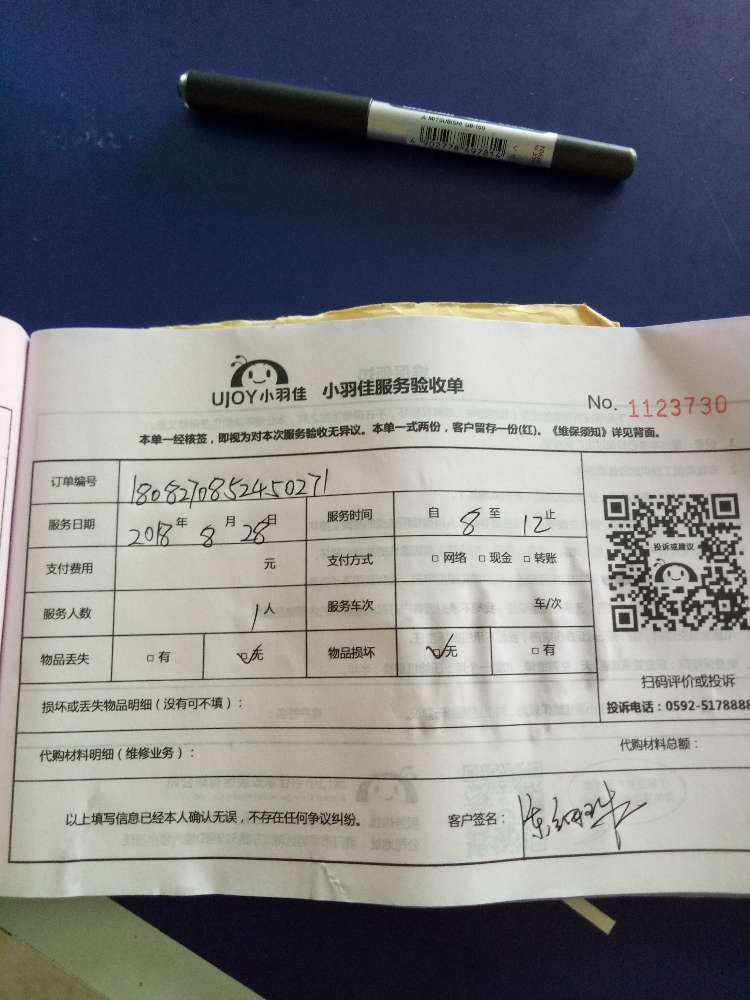 MITSUBISHI UB-150
4 902778 697814
UJOY小羽佳 小羽佳服务验收单
No. 1123730
本单一经核签，即视为对本次服务验收无异议。本单一式两份，客户留存一份(红)。《维保须知》详见背面。
订单编号 1808270852450271
服务日期 2018年 8月 28日 服务时间 自 8 至 12 止
支付费用 元 支付方式 □ 网络 □ 现金 □ 转账
服务人数 1人 服务车次 车/次
物品丢失 □ 有 □ 无 物品损坏 □ 无 □ 有
投诉或建议
扫码评价或投诉
投诉电话：0592-5178888
损坏或丢失物品明细（没有可不填）：
代购材料明细（维修业务）： 代购材料总额：
以上填写信息已经本人确认无误，不存在任何争议纠纷。 客户签名：